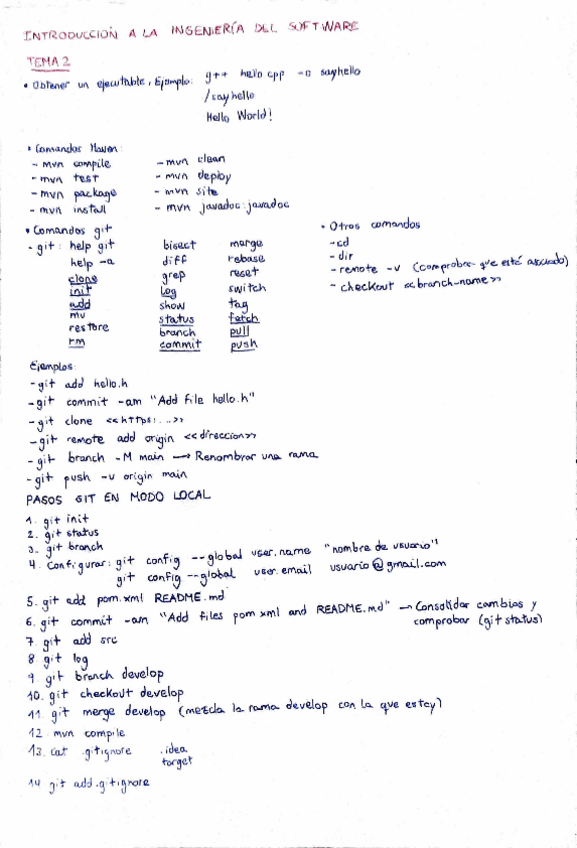 INTRODUCCIÓN A LA INGENIERÍA DEL SOFTWARE
TEMA 2
• Obtener un ejecutable, Ejemplo: g++ hello cpp -o sayhello
/sayhello
Hello World!
• Comandos Maven:
- mvn compile
- mvn test
- mvn package
- mvn install
- mvn clean
- mvn deploy
- mvn site
- mvn javadoc:javadoc
• Comandos git
- git: help git
help -a
clone
init
add
mv
restore
rm
bisect
diff
grep
log
show
status
branch
commit
merge
rebase
reset
switch
tag
fetch
pull
push
• Otros comandos
- cd
- dir
- remote -v (comprobar que está asociado)
- checkout <<branch-name>>
Ejemplos:
- git add hello.h
- git commit -am "Add file hello.h"
- git clone <<https:...>>
- git remote add origin <<direccion>>
- git branch -M main → Renombrar una rama
- git push -u origin main
PASOS GIT EN MODO LOCAL
1. git init
2. git status
3. git branch
4. Configurar: git config --global user.name "nombre de usuario"
git config --global user.email usuario@gmail.com
5. git add pom.xml README.md
6. git commit -am "Add files pom.xml and README.md" → Consolidar cambios y
comprobar (git status)
7. git add src
8. git log
9. git branch develop
10. git checkout develop
11. git merge develop (mezcla la rama develop con la que estoy)
12. mvn compile
13. cat .gitignore .idea
target
14 git add .gitignore